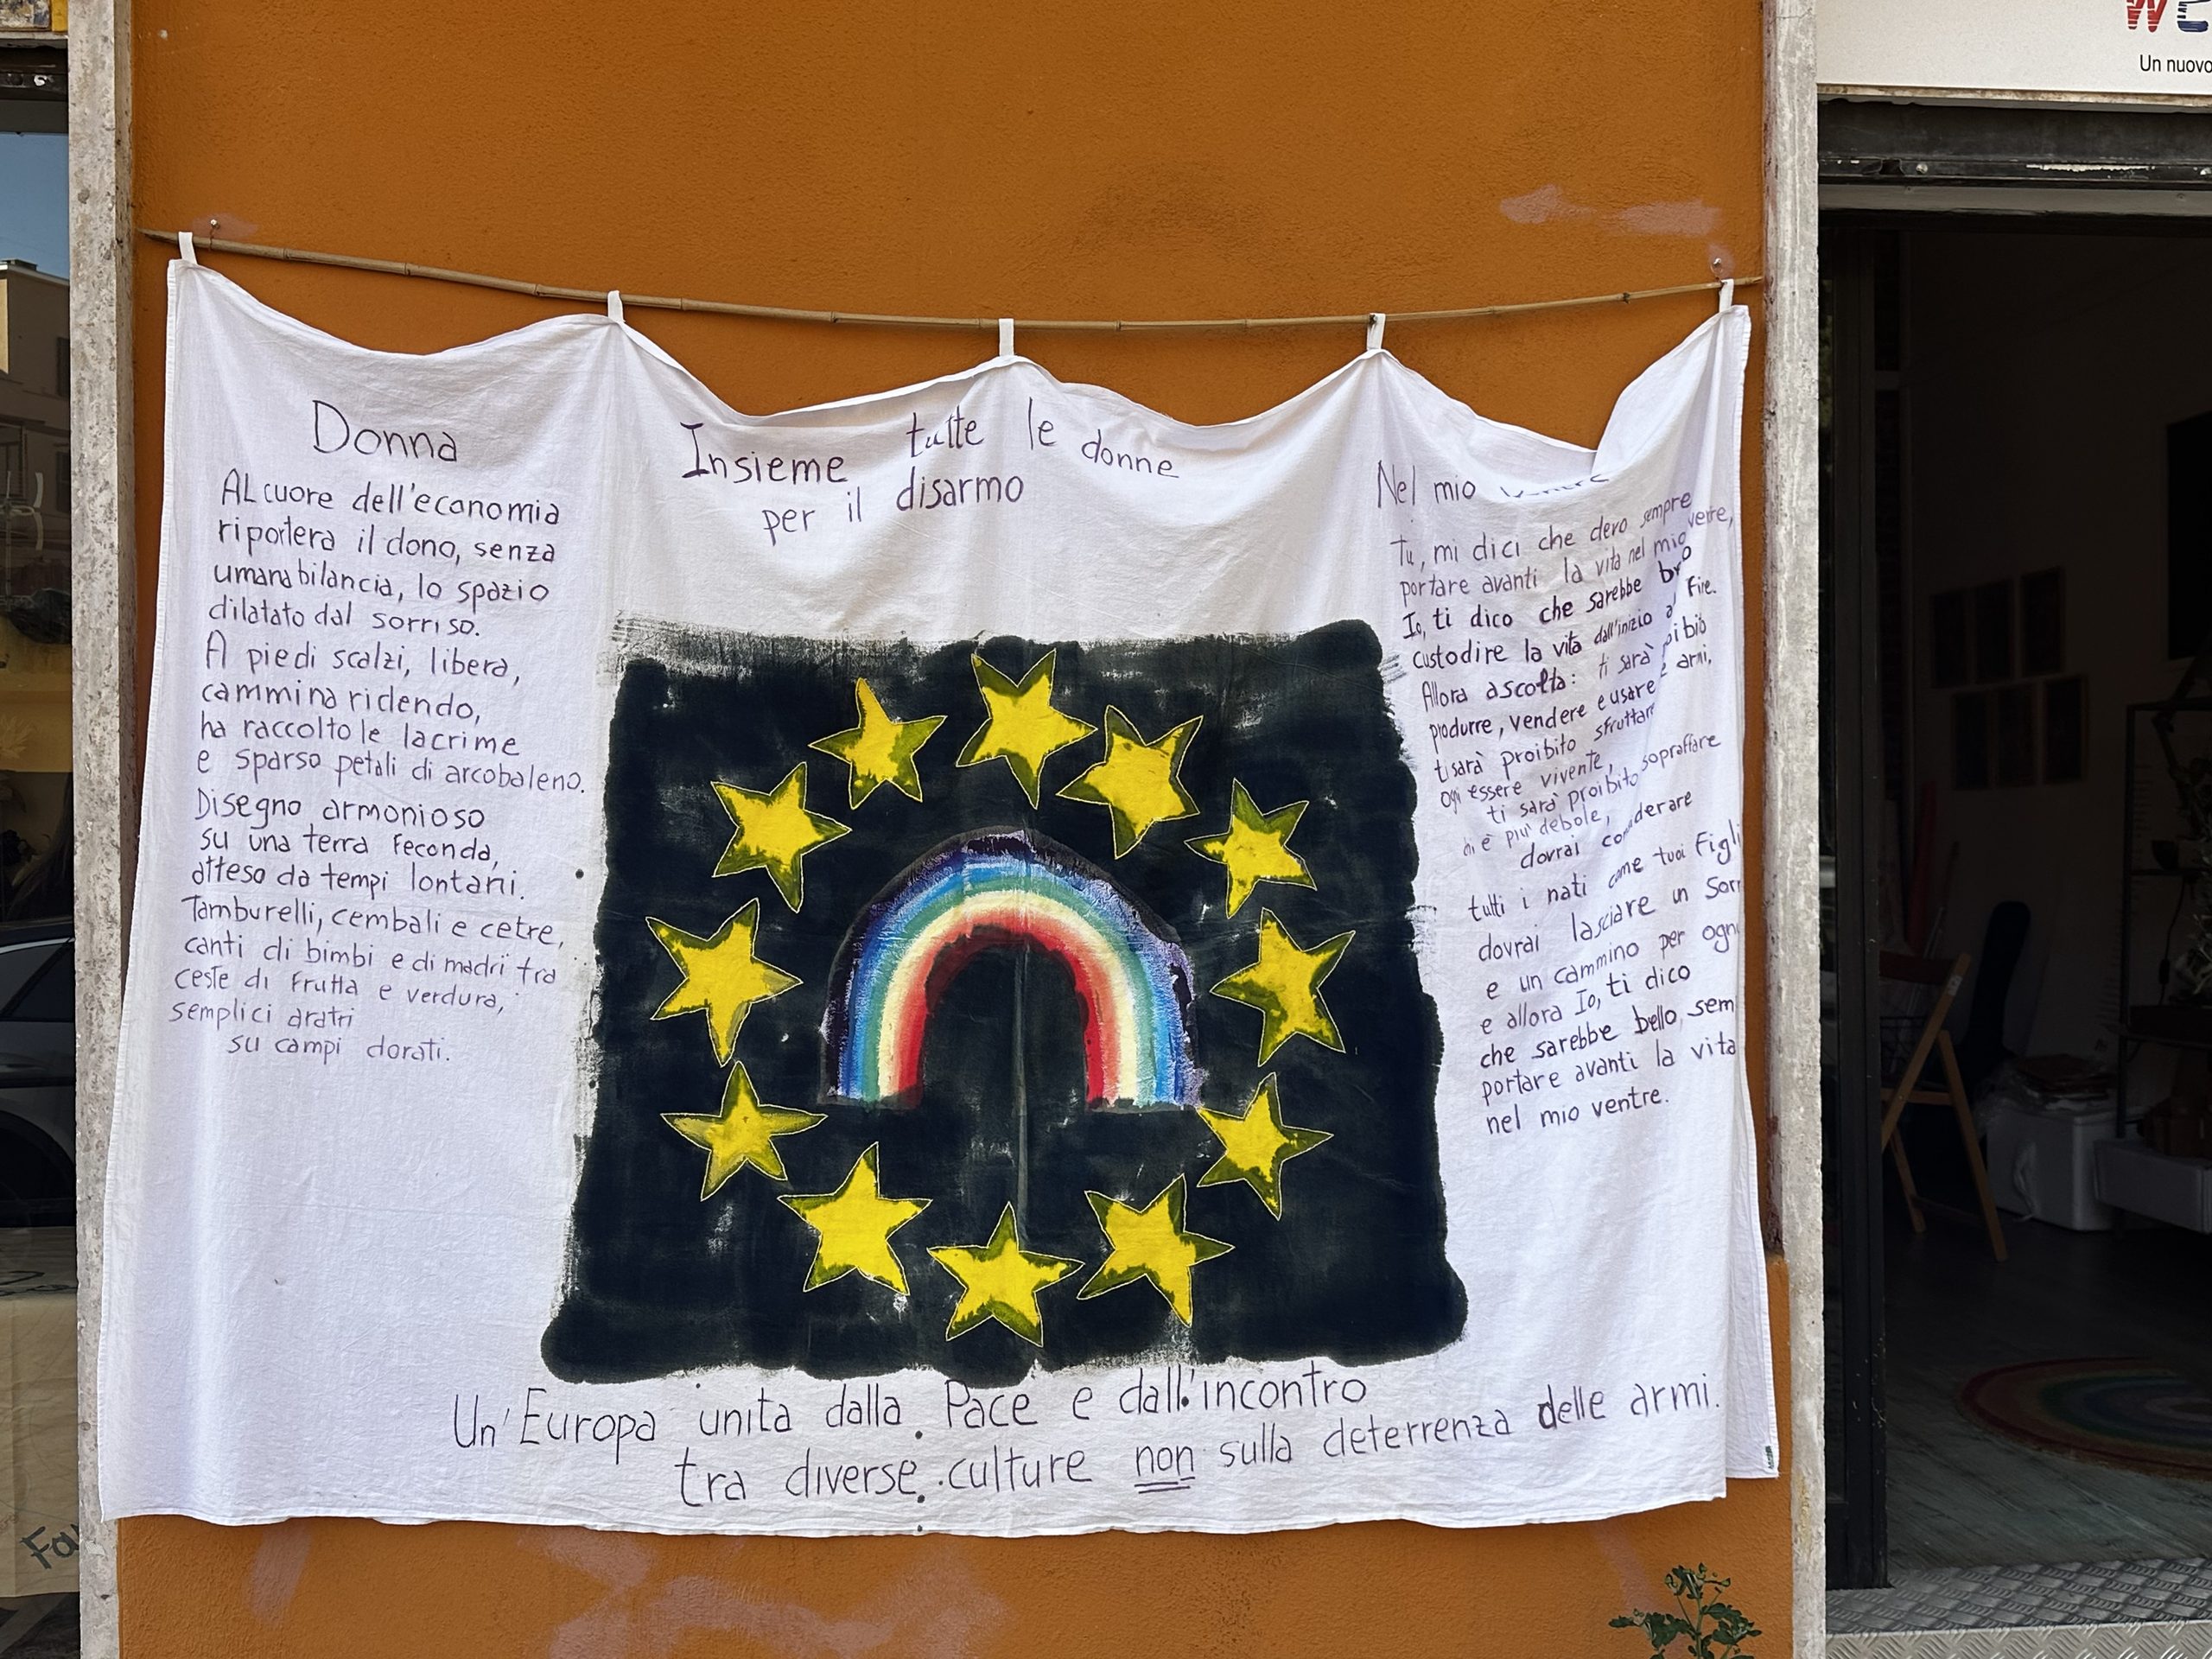 Donna
AL cuore dell'economia
riporterà il dono, senza
umana bilancia, lo spazio
dilatato dal sorriso.
A piedi scalzi, libera,
cammina ridendo,
ha raccolto le lacrime
e sparso petali di arcobaleno.
Disegno armonioso
su una terra feconda,
atteso da tempi lontani.
Tamburelli, cembali e cetre,
canti di bimbi e di madri tra
ceste di frutta e verdura,
semplici aratri
su campi dorati.
Insieme tutte le donne
per il disarmo
Nel mio
Tu, mi dici che devo sempre
portare avanti la vita nel mio ventre,
Io, ti dico che sarebbe
custodire la vita dall'inizio al Fine.
Allora ascolta: ti sarà
produrre, vendere e usare armi,
ti sarà proibito sfruttare
ogni essere vivente,
ti sarà proibito sopraffare
è più debole,
dovrai considerare
tutti i nati come tuoi Figli
dovrai lasciare un
e un cammino per ogni
e allora Io, ti dico
che sarebbe bello
portare avanti la vita
nel mio ventre.
Un'Europa unita dalla Pace e dall'incontro
tra diverse culture non sulla deterrenza delle armi.
Un nuovo